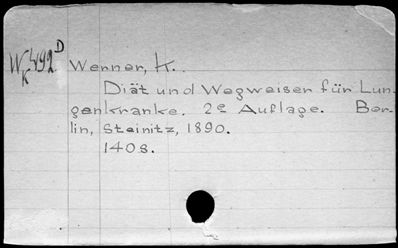 WK492D
Werner, H.
Diät und Wegweiser für Lun-
genkranke. 2e Auflage. Ber-
lin, Steinitz, 1890.
140s.